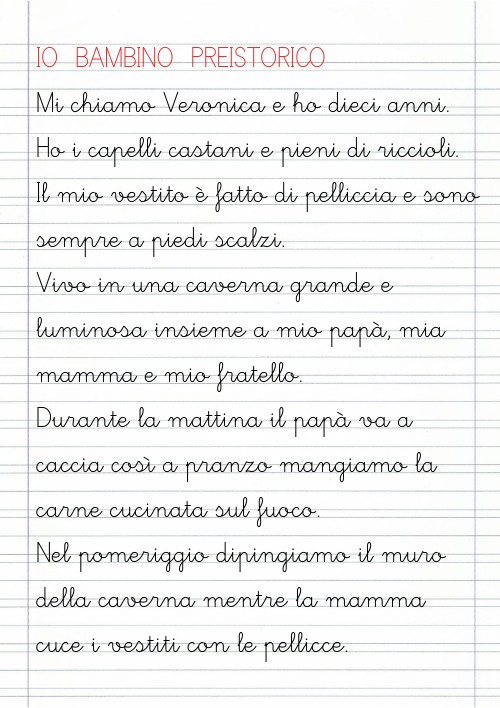 IO BAMBINO PREISTORICO
Mi chiamo Veronica e ho dieci anni.
Ho i capelli castani e pieni di riccioli.
Il mio vestito è fatto di pelliccia e sono
sempre a piedi scalzi.
Vivo in una caverna grande e
luminosa insieme a mio papà, mia
mamma e mio fratello.
Durante la mattina il papà va a
caccia così a pranzo mangiamo la
carne cucinata sul fuoco.
Nel pomeriggio dipingiamo il muro
della caverna mentre la mamma
cuce i vestiti con le pellicce.